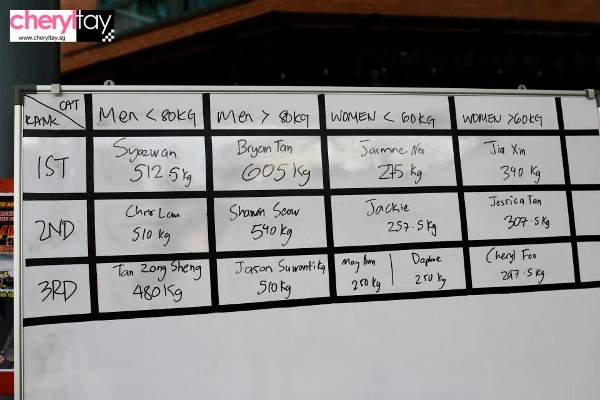 cheryltay
www.cheryltay.sg
CAT
RANK
Men < 80KG
Men > 80KG
WOMEN < 60KG
WOMEN >60KG
1ST
Syazwan
512.5kg
Bryan Tan
605kg
Jasmine Neo
275 kg
Jia Xin
340 kg
2ND
Chris Lau
510 kg
Shawn Seow
540 kg
Jackie
257.5kg
Jessica Tan
307.5kg
3RD
Tan Zong Sheng
480kg
Jason Suwantika
510kg
May Ann
250 kg
Daphne
250 kg
Cheryl Foo
297.5kg